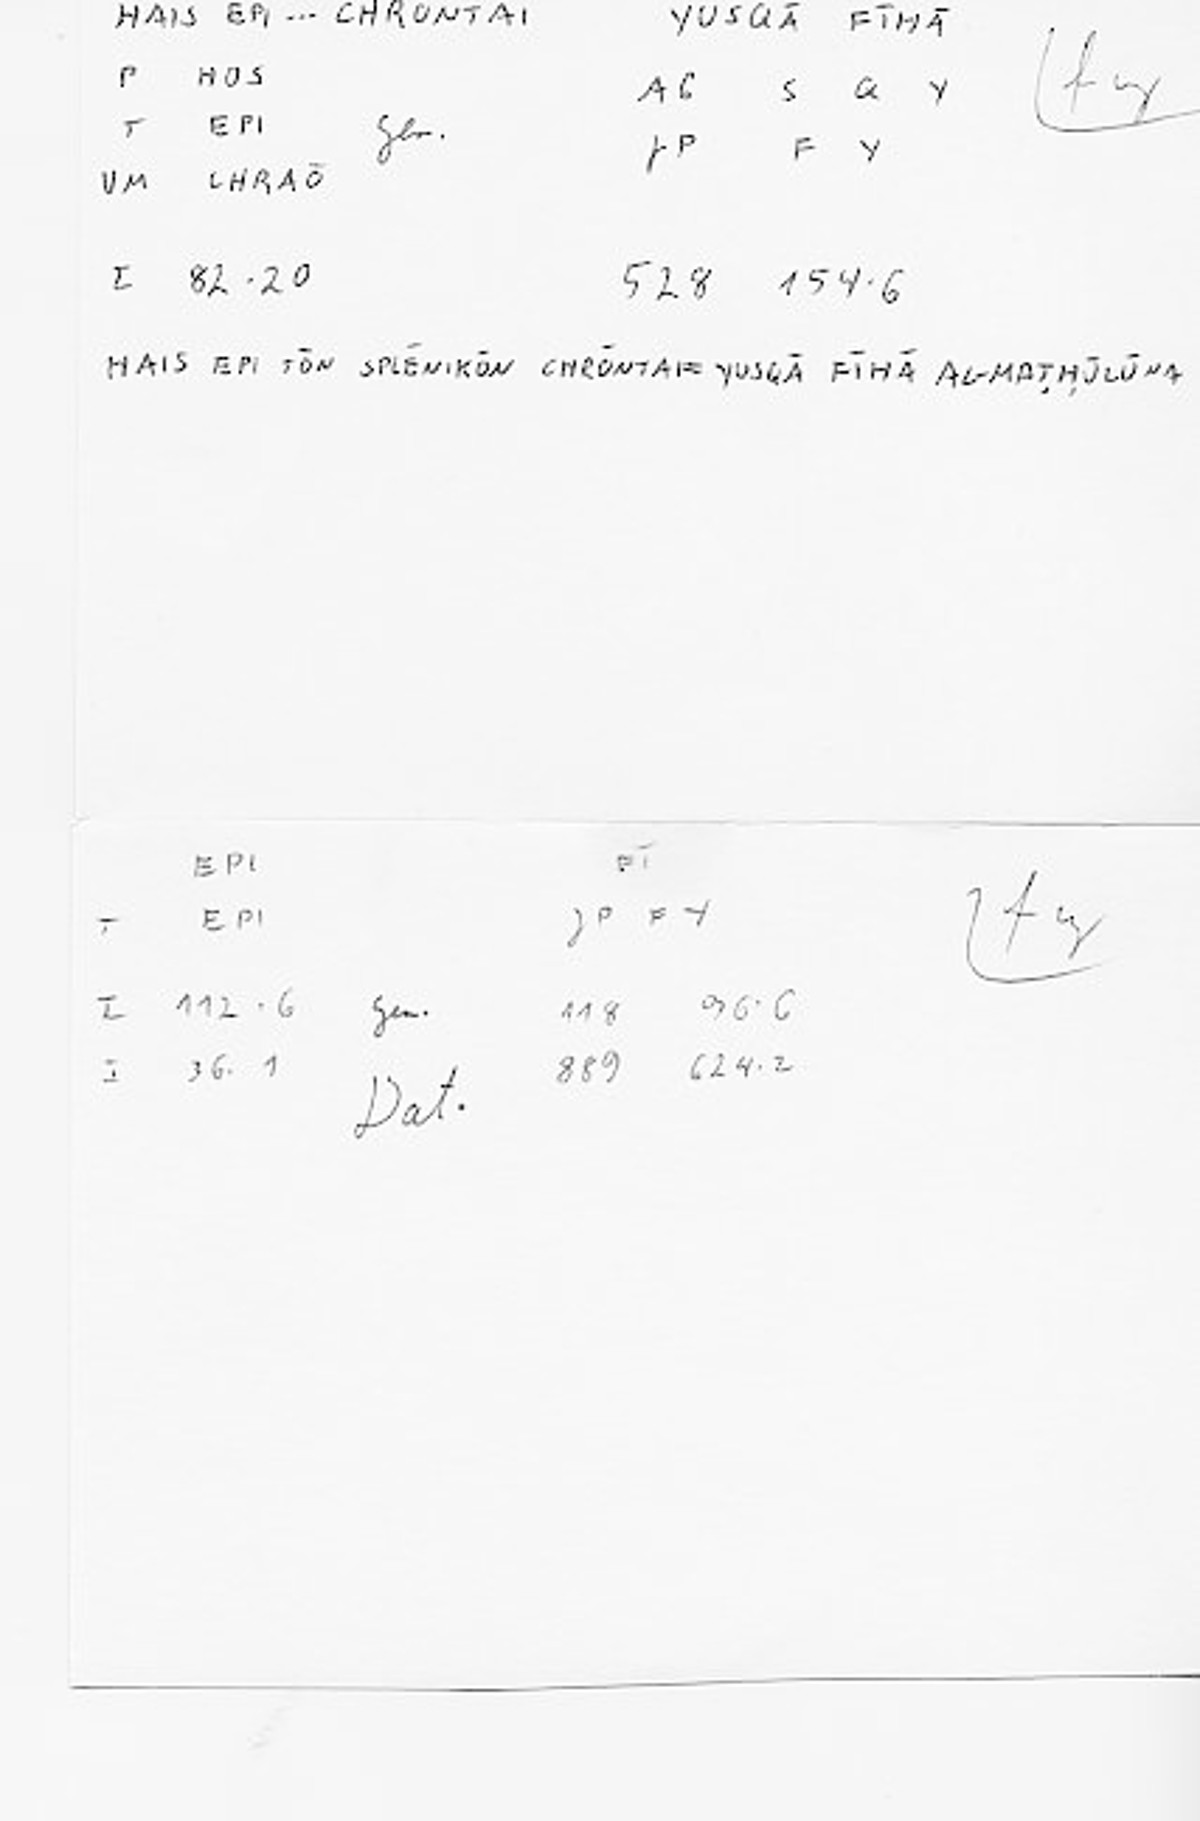 HAIS EPI ... CHRŌNTAI YUSQĀ FĪHĀ
P HOS AG S Q Y fy
T EPI Gen. JP F Y
VM CHRAŌ
I 82.20 528 154.6
HAIS EPI TŌN SPLĒNIKŌN CHRŌNTAI = YUSQĀ FĪHĀ AL-MAṬḤŪLŪNA
EPI FĪ
T EPI JP F Y fy
I 112.6 Gen. 118 96.6
I 36.1 Dat. 889 624.2